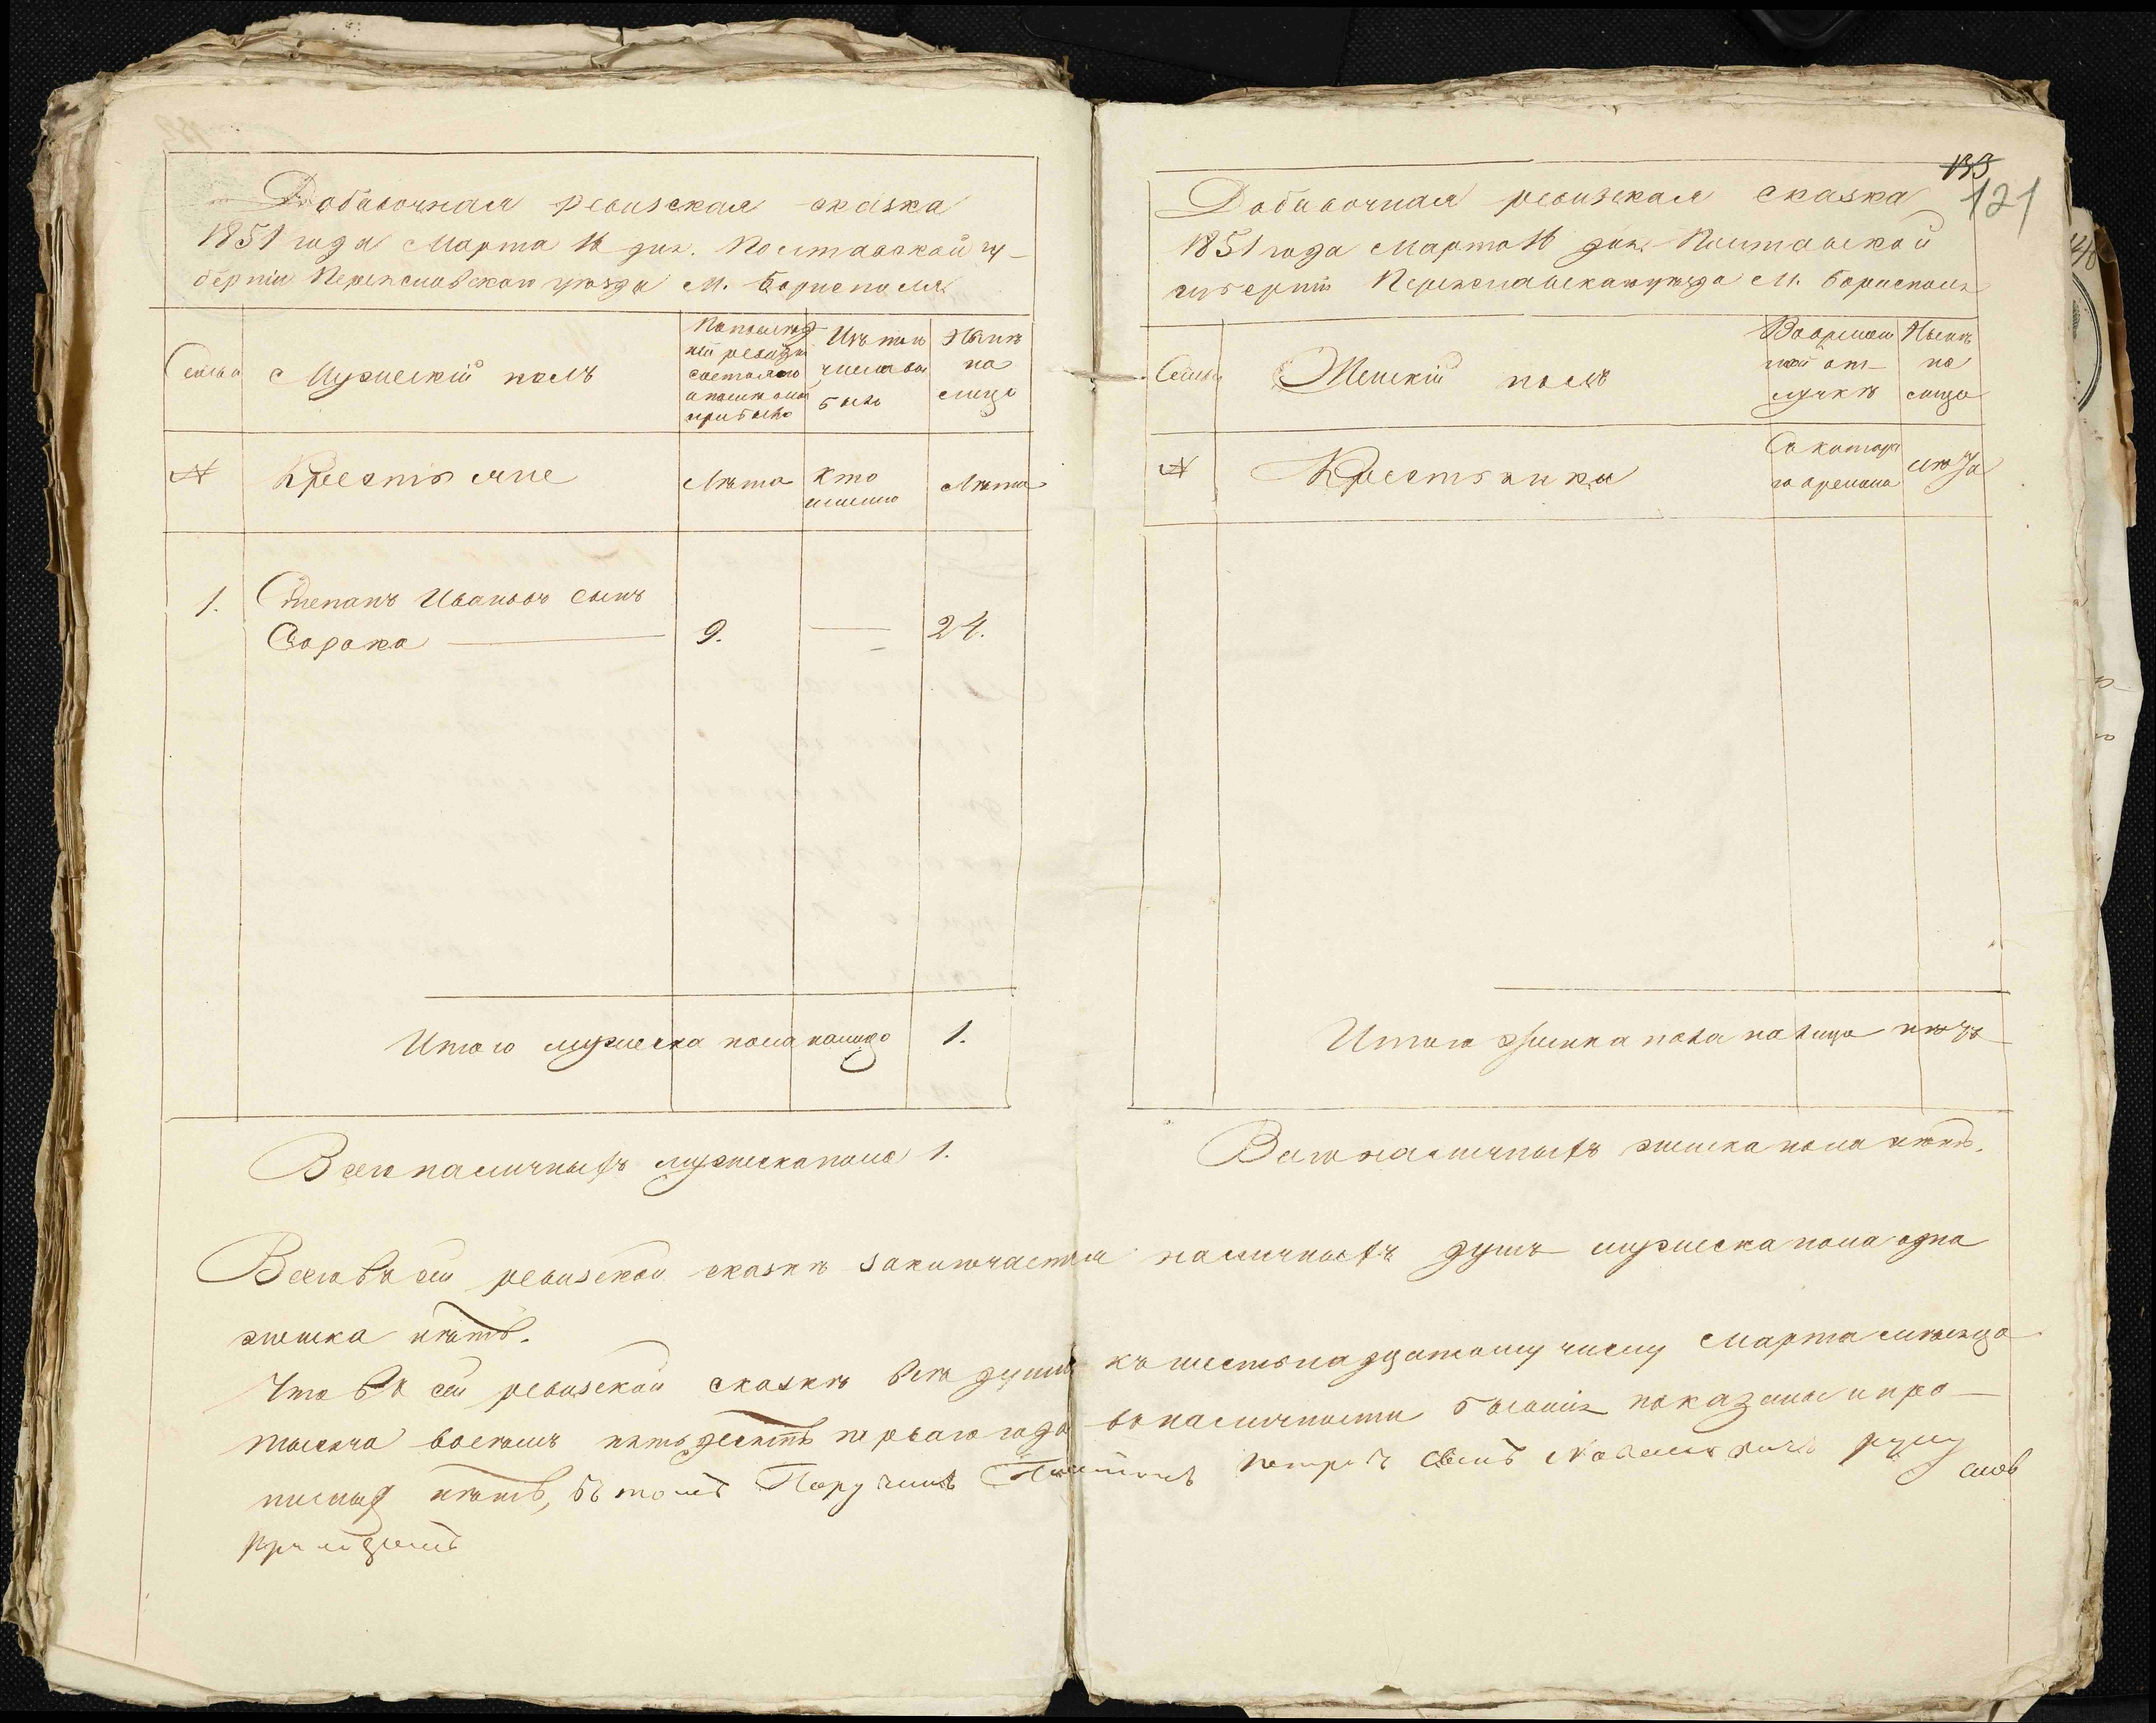 Добавочная ревизская сказка
1851 года Марта 16 дня. Полтавской гу-
берніи Переяславского уѣзда М. Борисполя
Семьи
Мужескій полъ
По послѣд
ней ревизіи
состояло
и после оной
прибыло
Изъ того
числа вы
было
Нынѣ
на
лицо
№
Крестьяне
Лѣта
Кто
именно
Лѣта
1.
Степанъ Ивановъ сынъ
Сорока
9.
24.
Итого мужеска пола налицо 1.
Всего наличныхъ мужеска пола 1.
133
121
Добавочная ревизская сказка
1851 года Марта 16 дня Полтавской
губерніи Переяславского уѣзда М. Борисполя
Семьи
Женскій полъ
Во времен
ной от-
лучкѣ
Нынѣ
на
лицо
№
Крестьянки
Съ котора
го времени
лѣта
Итого женска пола налицо нѣтъ
Всего наличныхъ женска пола нѣтъ.
Всего въ сей ревизской сказкѣ заключается наличныхъ душъ мужеска пола одна
женска нѣтъ.
Что въ сей ревизской сказкѣ всѣ души къ шестьнадцатому числу Марта мѣсяца
тысяча восемъ пятьдесятъ перваго года въ наличности бывшія показаны и про-
писныхъ нѣтъ, въ томъ Поручикъ Петровъ сынъ руку